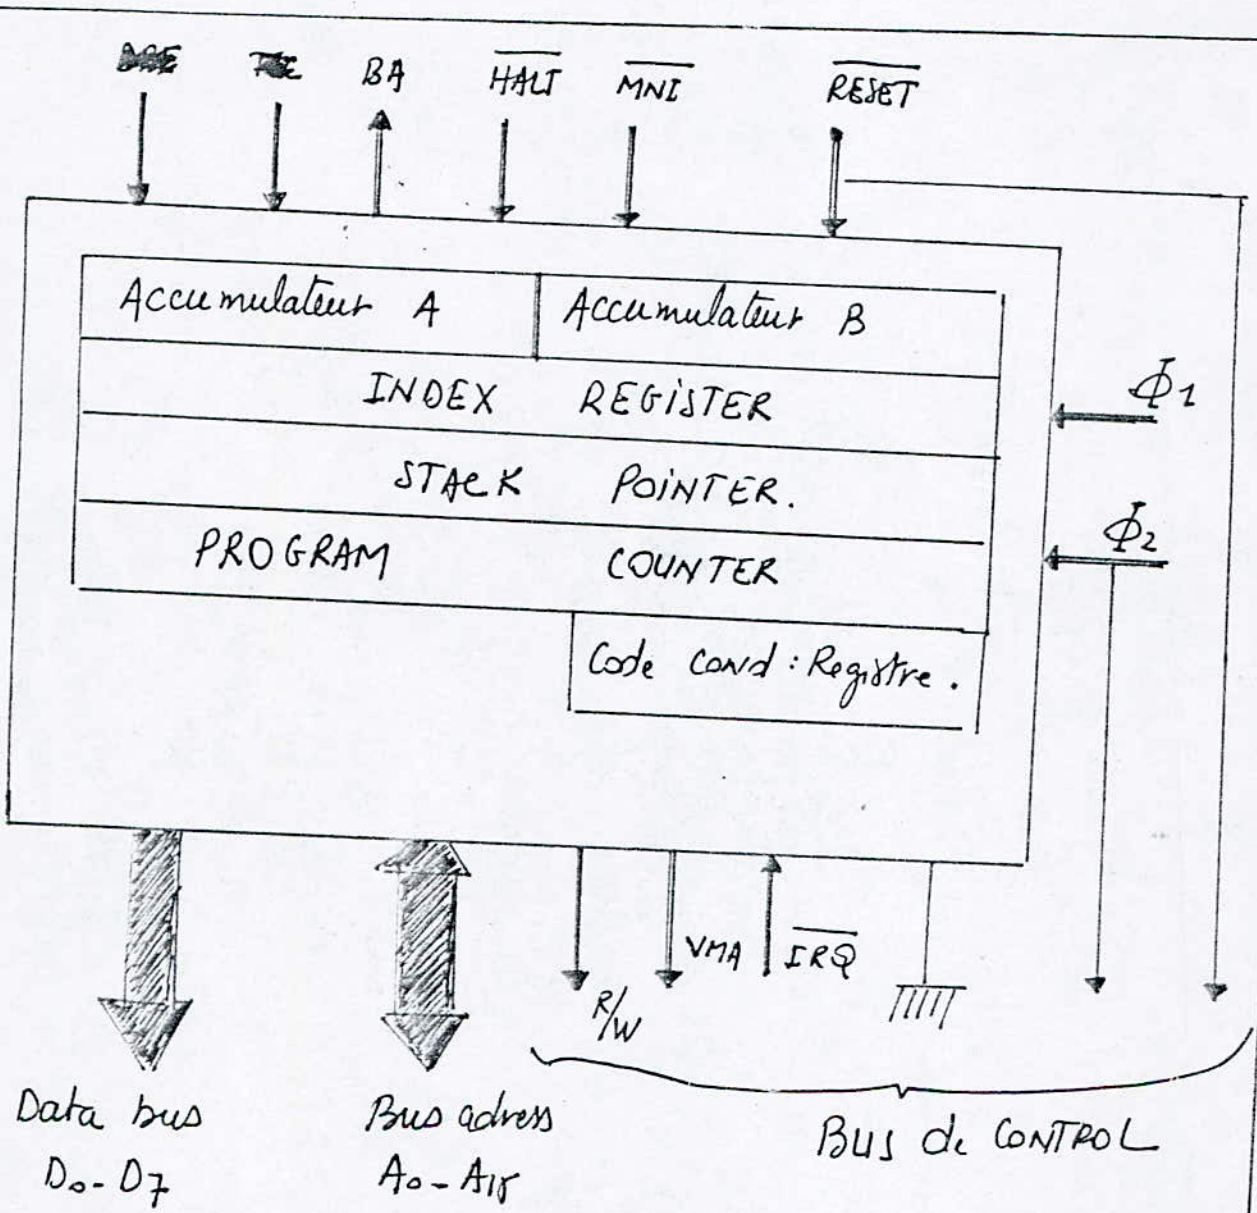 BA
HALT
MNI
RESET
Accumulateur A
Accumulateur B
INDEX REGISTER
STACK POINTER.
PROGRAM COUNTER
Code cond : Registre.
Φ1
Φ2
R/W
VMA
IRQ
Data bus
D0-D7
Bus adress
A0-A15
Bus de CONTROL